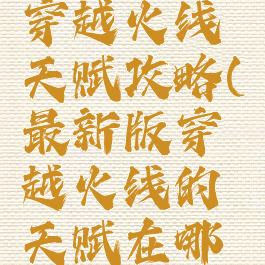 穿越火线
天赋攻略(
最新版穿
越火线的
天赋在哪